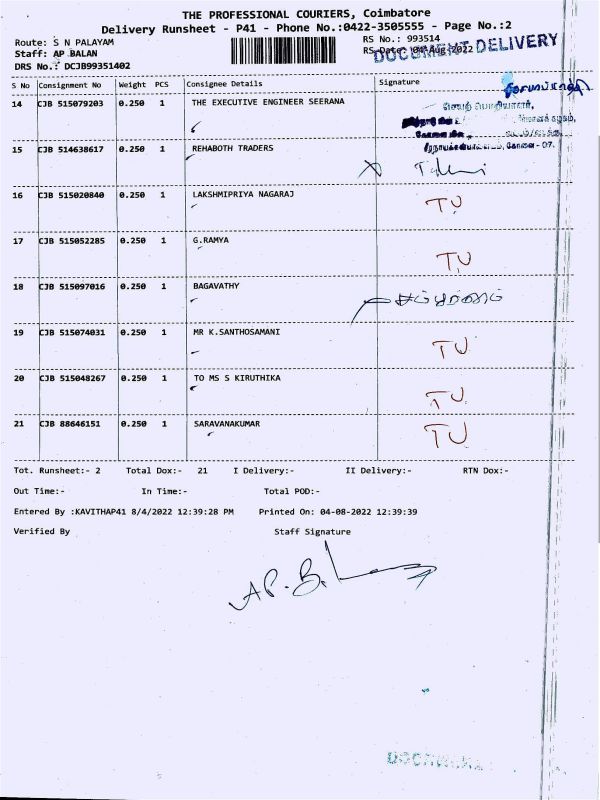 THE PROFESSIONAL COURIERS, Coimbatore
Delivery Runsheet - P41 - Phone No.:0422-3505555 - Page No.:2
Route: S N PALAYAM
RS No.: 993514
Staff: AP BALAN
RS Date: 04-Aug-2022
DOCUMENT DELIVERY
DRS No.: DCJB99351402
S No Consignment No Weight PCS Consignee Details Signature
14 CJB 515079203 0.250 1 THE EXECUTIVE ENGINEER SEERANA
செயற் பொறியாளர்,
கோவை - 07.
15 CJB 514638617 0.250 1 REHABOTH TRADERS
16 CJB 515020840 0.250 1 LAKSHMIPRIYA NAGARAJ TU
17 CJB 515052285 0.250 1 G.RAMYA TU
18 CJB 515097016 0.250 1 BAGAVATHY
19 CJB 515074031 0.250 1 MR K.SANTHOSAMANI TU
20 CJB 515048267 0.250 1 TO MS S KIRUTHIKA TU
21 CJB 88646151 0.250 1 SARAVANAKUMAR TU
Tot. Runsheet:- 2 Total Dox:- 21 I Delivery:- II Delivery:- RTN Dox:-
Out Time:- In Time:- Total POD:-
Entered By :KAVITHAP41 8/4/2022 12:39:28 PM Printed On: 04-08-2022 12:39:39
Verified By Staff Signature